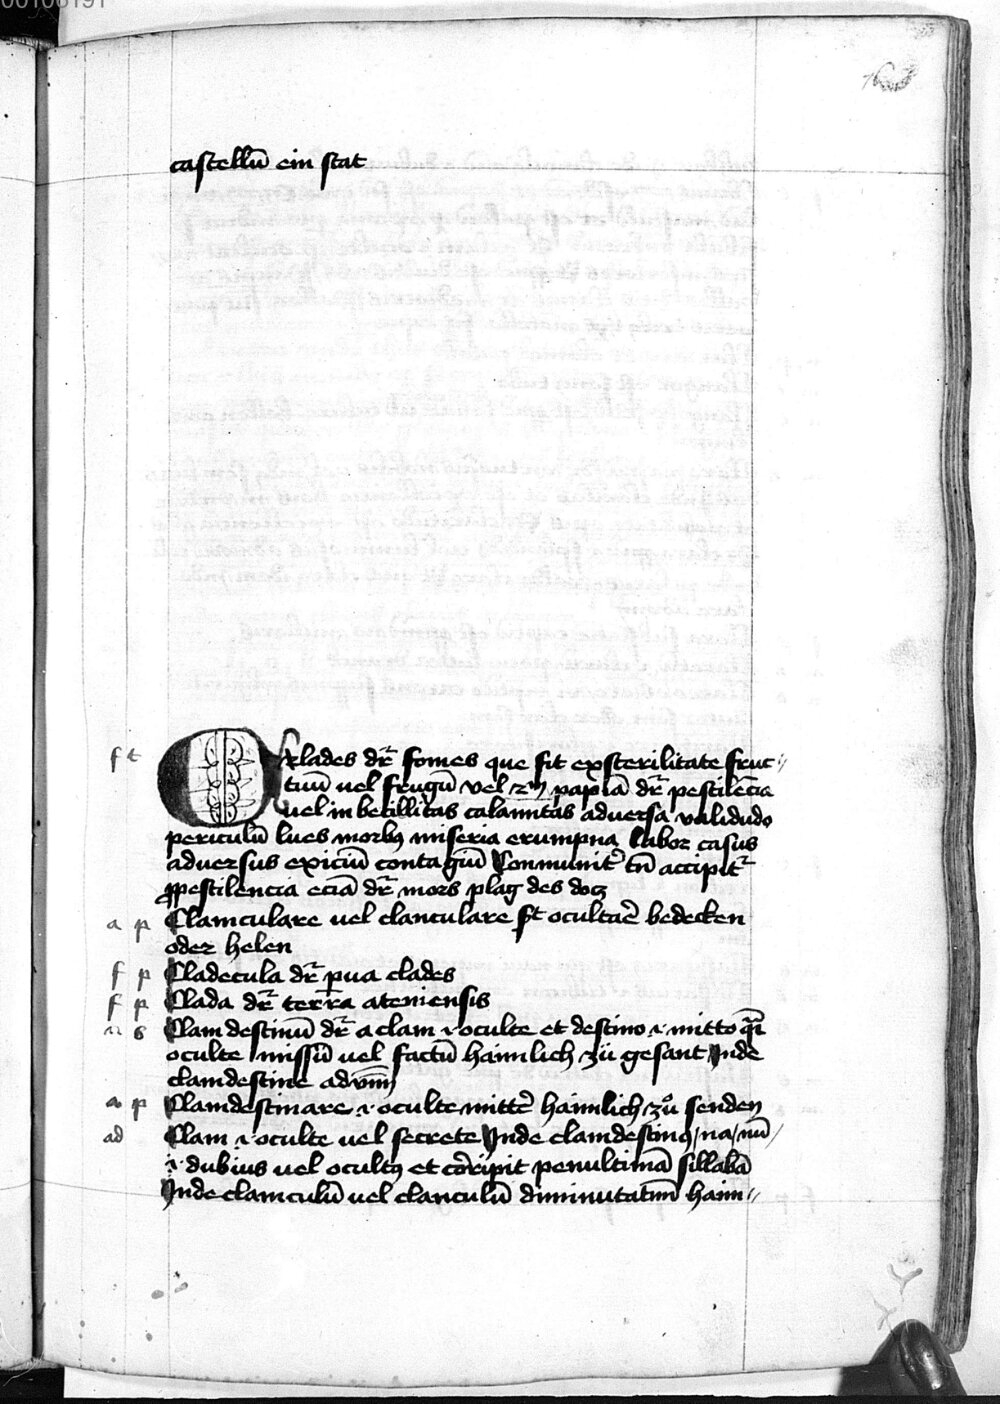 00106191
castellū ein stat
f t Clades dr̄ fomes que fit exsterilitate fruc⸗
tuū vel frugū vel papiā dr̄ pestilēcia
vel inbecillitas calamitas adversa validudo
periculū lues morbꝰ miseria erumpna labor casus
adversus exiciū contagiū Communit̄ tn̄ accipit̄
ꝓpestilencia eciā dr̄ mors plag des docz
a p Clamculare vel clanculare ocultare bedecken
oder helen
f p Cladecula dr̄ pua clades
f p Clada dr̄ terra ateniensis
n s Clamdestinū dr̄ a clam .i. oculte et destino .i. mitto qͣi
oculte missū vel factū haimlich zů gesant Inde
clamdestine adv̄m
a p Clamdestinare .i. oculte mitter̄ haimlich zů senden
ad Clam .i. oculte vel secrete Inde clamdestinꝰ/na/nū/
.i. dubius vel ocultꝰ et cōripit penultimā sillabā
Inde clamculū vel clanculū diminutatiuū haim⸗